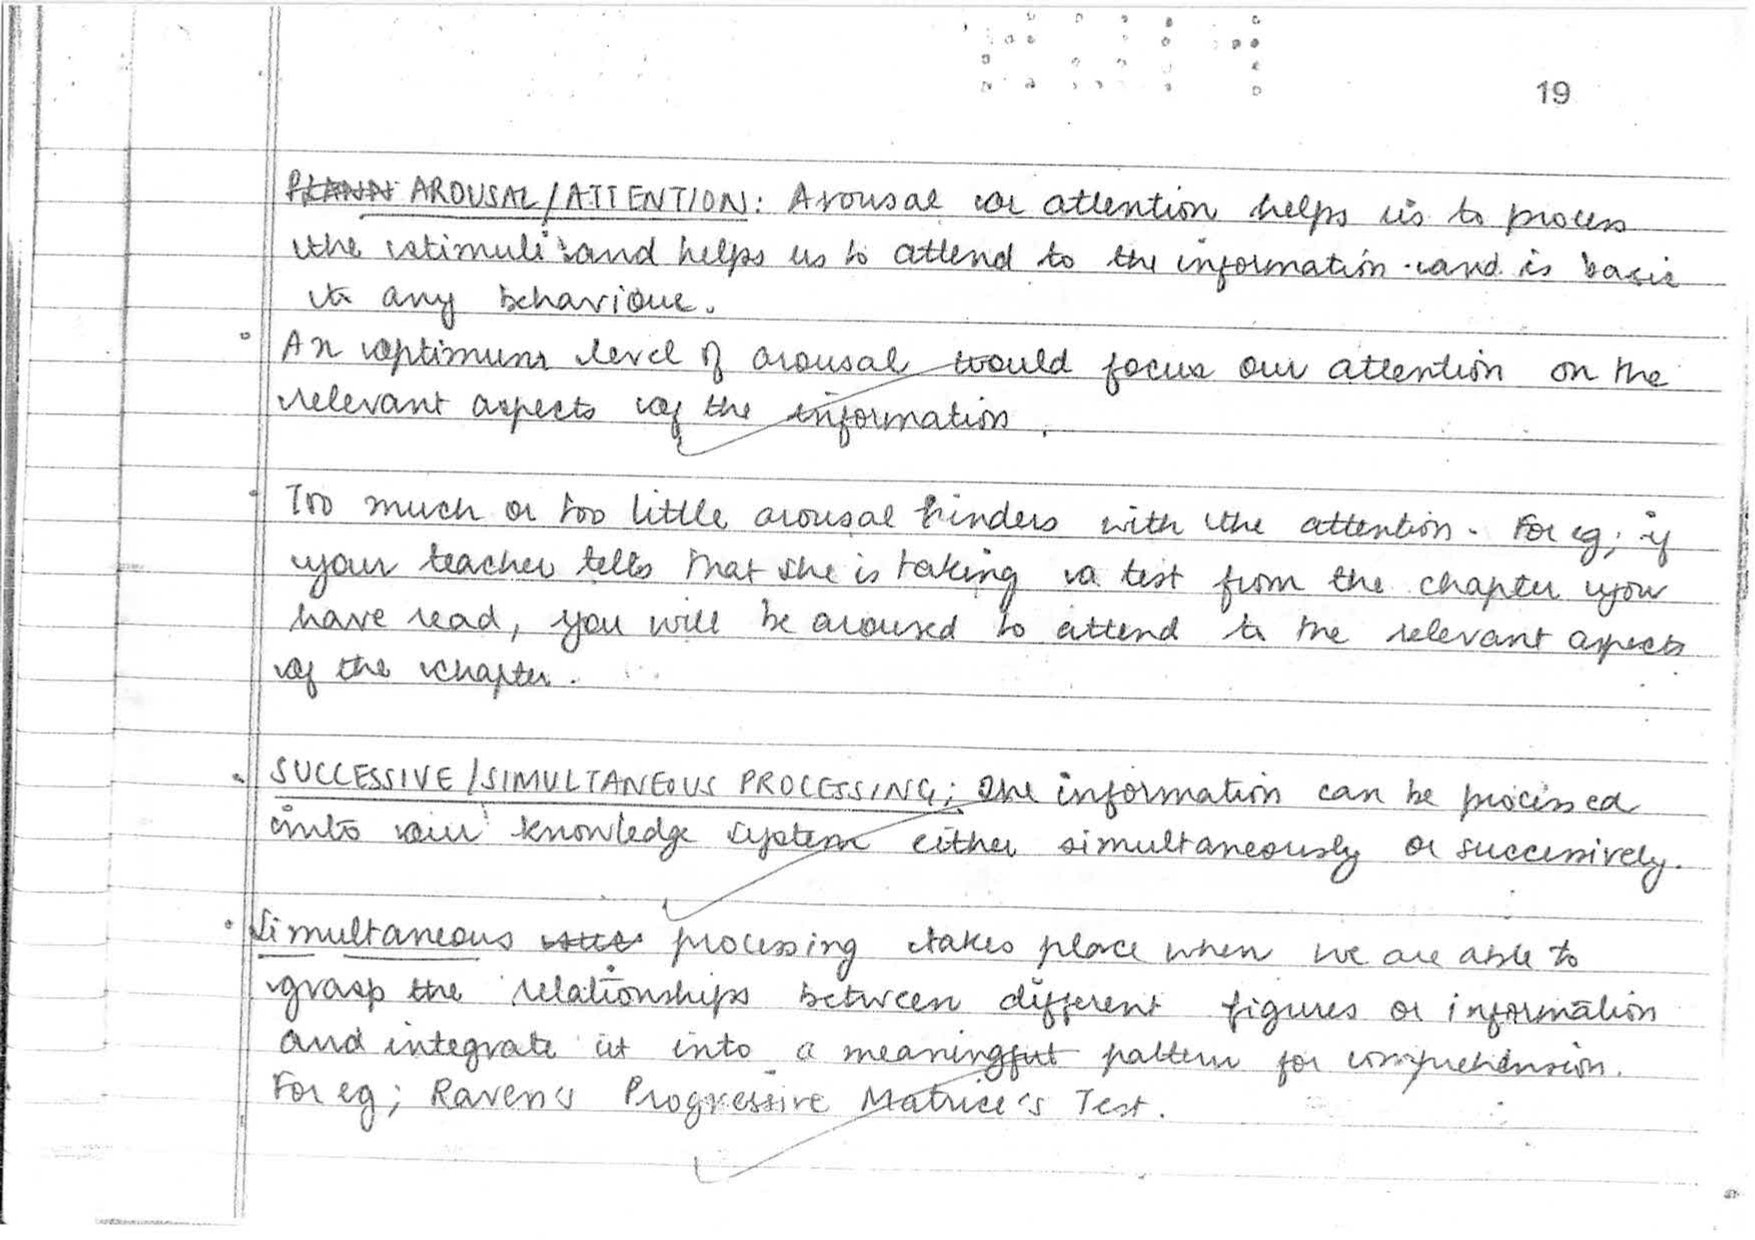 19
PLANN AROUSAL/ATTENTION: Arousal or attention helps us to process
the stimuli and helps us to attend to the information and is basic
to any behaviour.
An optimum level of arousal would focus our attention on the
relevant aspects of the information.
Too much or too little arousal hinders with the attention. For eg; if
your teacher tells that she is taking a test from the chapter you
have read, you will be aroused to attend to the relevant aspects
of the chapter.
SUCCESSIVE/SIMULTANEOUS PROCESSING; The information can be processed
into our knowledge system either simultaneously or successively.
Simultaneous processing takes place when we are able to
grasp the relationships between different figures or information
and integrate it into a meaningful pattern for comprehension.
For eg; Raven's Progressive Matrice's Test.